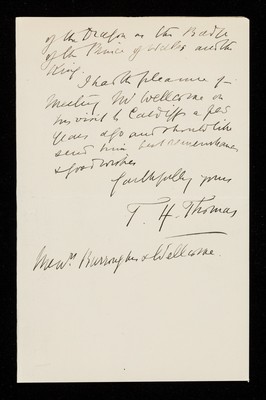 of the Dragon as the Badge
of the Prince of Wales and the
King.
I had the pleasure of
meeting Mr Wellcome on
his visit to Cardiff a few
years ago and should like
send him best remembrances
& good wishes
faithfully yours
T. H. Thomas
Messrs Burroughs & Wellcome.